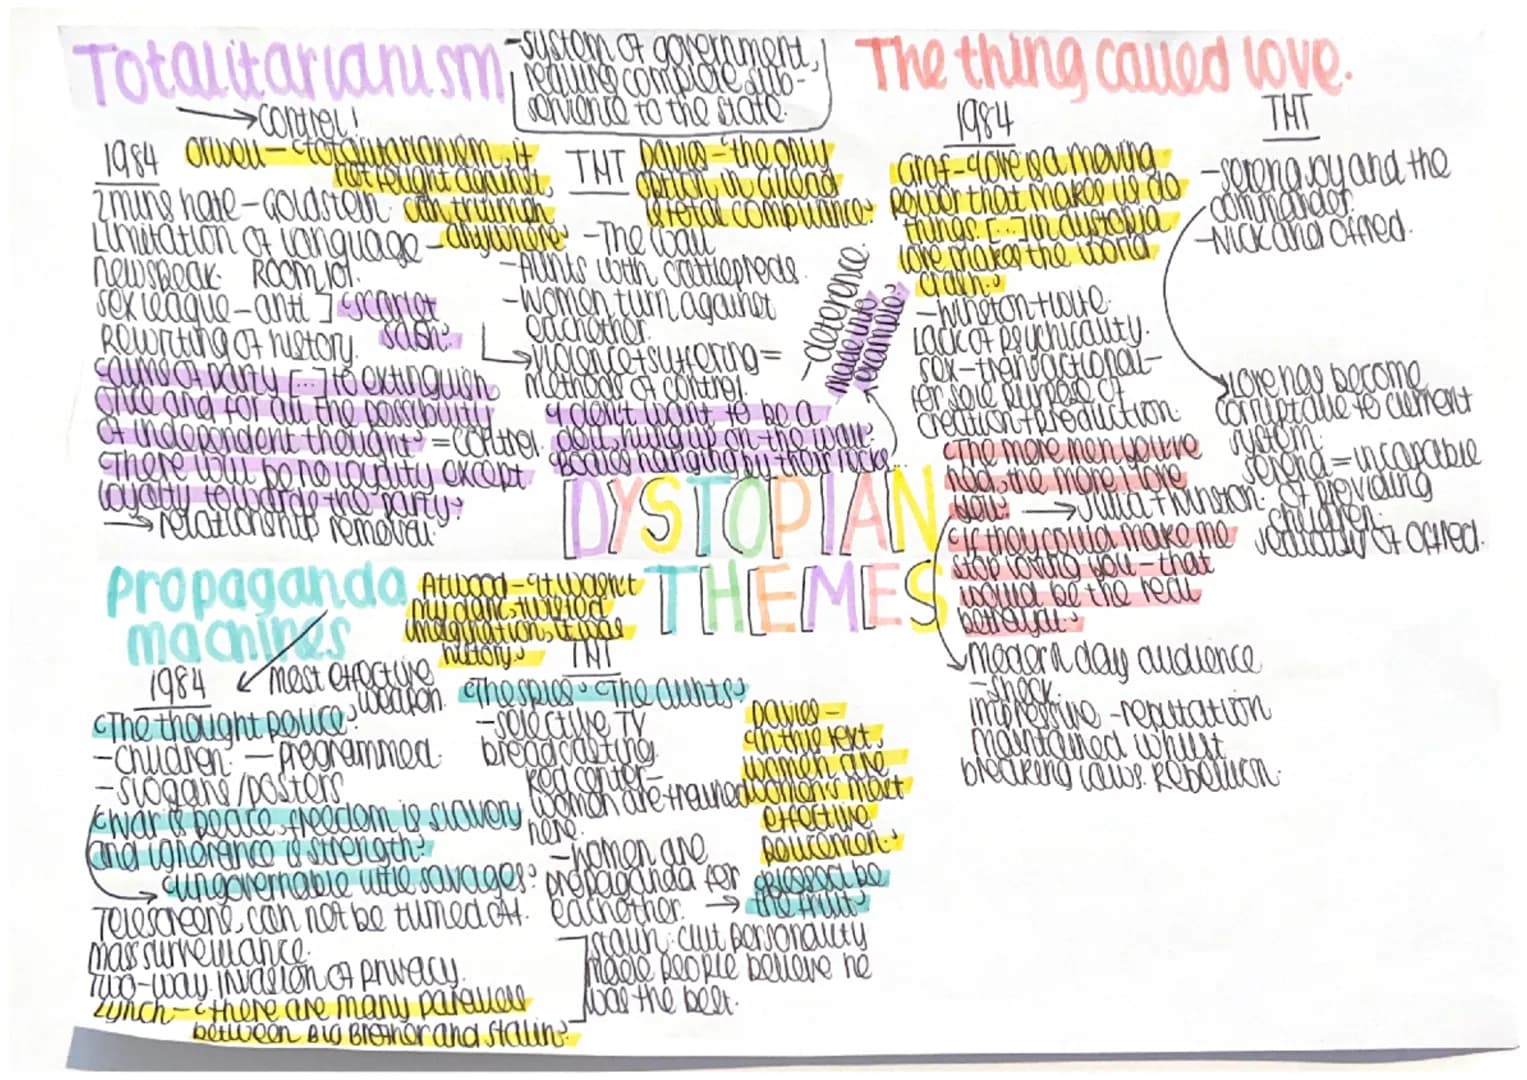 Totalitarianism
-system of government,
requiring complete sub-
servience to the state.
→ control!
1984
Orwell - "totalitarianism, if
not fought against,
can triumph
anywhere"
2 mins hate - Goldstein.
Limitation of language -
newspeak. Room 101.
sex league - anti ] "scarlet
sash."
Rewriting of history.
"aims of party [...] to extinguish
once and for all the possibility
of independent thought" = control.
"There will be no loyalty except
loyalty towards the party"
→ relationship removal.
THT
Davies - "the only
option in Gilead
is total compliance"
-The wall
-Aunts with cattleprods.
-women turn against
eachother.
→ violence + suffering =
methods of control.
-deterence.
made into
example.
"I don't want to be a
doll, hung up on the wall"
"Bodies hanging by their necks"
The thing called love.
1984
Graf - "love is a moving
power that makes us do
things. [...] In dystopia
love makes the world
crash."
-winston + wife.
Lack of psychicality.
sex - transactional -
for sole purpose of
creation + production.
"The more men you've
had, the more I love
you" → Julia + Winston.
"If they could make me
stop loving you - that
would be the real
betrayal."
modern day audience
- shock.
impressive - reputation
maintained whilst
breaking laws. Rebellion.
THT
-serena joy and the
commander
-Nick and offred.
Love has become
corruptable to current
system.
serena = incapable
of providing
children.
of offred.
DYSTOPIAN
THEMES
Propaganda
machines
→ most effective
weapon.
Atwood - "it wasn't
my dark, twisted
imagination, it was
history."
1984
"The thought police"
-children. - programmed.
-slogans/posters
"War is peace, freedom is slavery
and ignorance is strength."
→ "ungovernable little savages"
Telescreens, can not be turned off.
mass surveillance.
Two-way invasion of privacy.
Lynch - "there are many parallels
between Big Brother and Stalin."
THT
"The spies" "The Aunts"
-selective TV
breadcasting.
Red center -
women are trained
here.
-women are
propaganda for
eachother. → "blessed be
the fruit"
Davies -
"in this text,
women are
women's most
effective
policemen."
Stalin: cult personality
made people believe he
was the best.